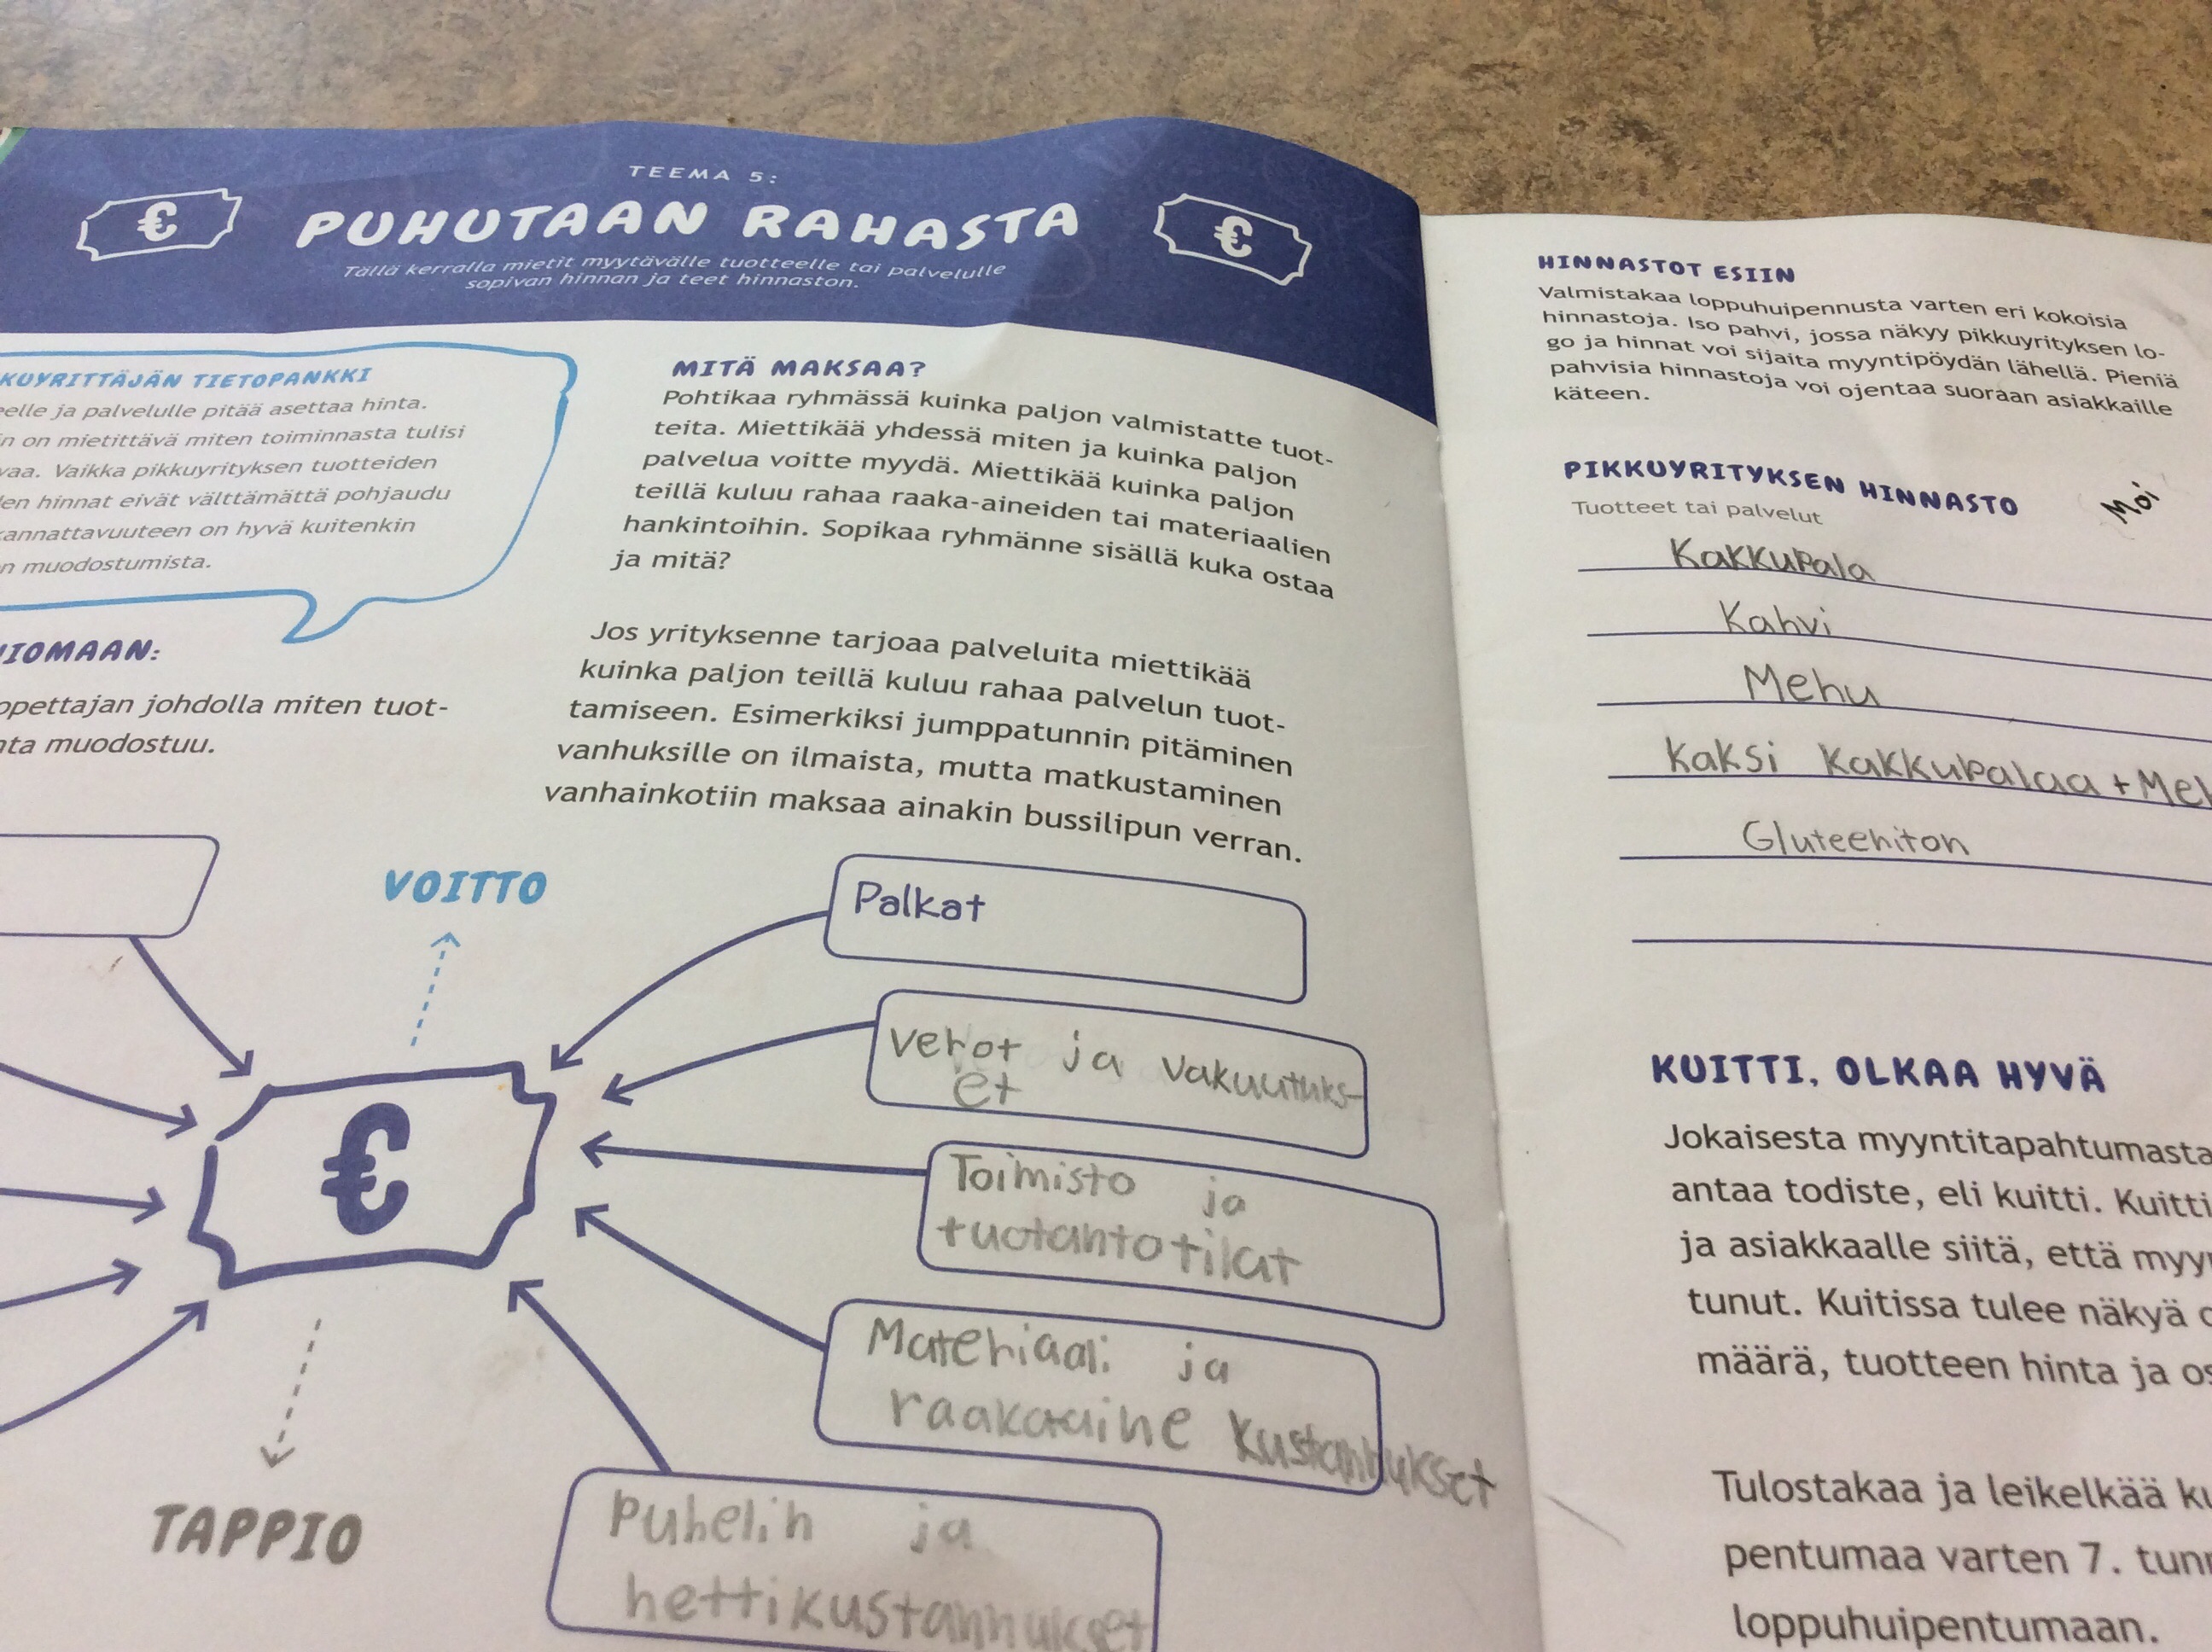 TEEMA 5:
€ PUHUTAAN RAHASTA €
Tällä kerralla mietit myytävälle tuotteelle tai palvelulle
sopivan hinnan ja teet hinnaston.
TIETOPANKKI
ja palvelulle pitää asettaa hinta.
on mietittävä miten toiminnasta tulisi
Vaikka pikkuyrityksen tuotteiden
hinnat eivät välttämättä pohjaudu
on hyvä kuitenkin
muodostumista.
johdolla miten tuot-
muodostuu.
MITÄ MAKSAA?
Pohtikaa ryhmässä kuinka paljon valmistatte tuot-
teita. Miettikää yhdessä miten ja kuinka paljon
palvelua voitte myydä. Miettikää kuinka paljon
teillä kuluu rahaa raaka-aineiden tai materiaalien
hankintoihin. Sopikaa ryhmänne sisällä kuka ostaa
ja mitä?
Jos yrityksenne tarjoaa palveluita miettikää
kuinka paljon teillä kuluu rahaa palvelun tuot-
tamiseen. Esimerkiksi jumppatunnin pitäminen
vanhuksille on ilmaista, mutta matkustaminen
vanhainkotiin maksaa ainakin bussilipun verran.
VOITTO
Palkat
verot ja vakuutuks-
et
€
Toimisto ja
tuotantotilat
Materiaali ja
raakaaine kustannukset
TAPPIO
Puhelin ja
nettikustannukset
HINNASTOT ESIIN
Valmistakaa loppuhuipennusta varten eri kokoisia
hinnastoja. Iso pahvi, jossa näkyy pikkuyrityksen lo-
go ja hinnat voi sijaita myyntipöydän lähellä. Pieniä
pahvisia hinnastoja voi ojentaa suoraan asiakkaille
käteen.
PIKKUYRITYKSEN HINNASTO
Moi
Tuotteet tai palvelut
Kakkupala
Kahvi
Mehu
Kaksi Kakkupalaa +
Gluteeniton
KUITTI, OLKAA HYVÄ
Jokaisesta myyntitapahtumasta
antaa todiste, eli kuitti. Kuitti
ja asiakkaalle siitä, että
tunut. Kuitissa tulee näkyä
määrä, tuotteen hinta ja
Tulostakaa ja leikelkää
pentumaa varten 7.
loppuhuipentumaan.